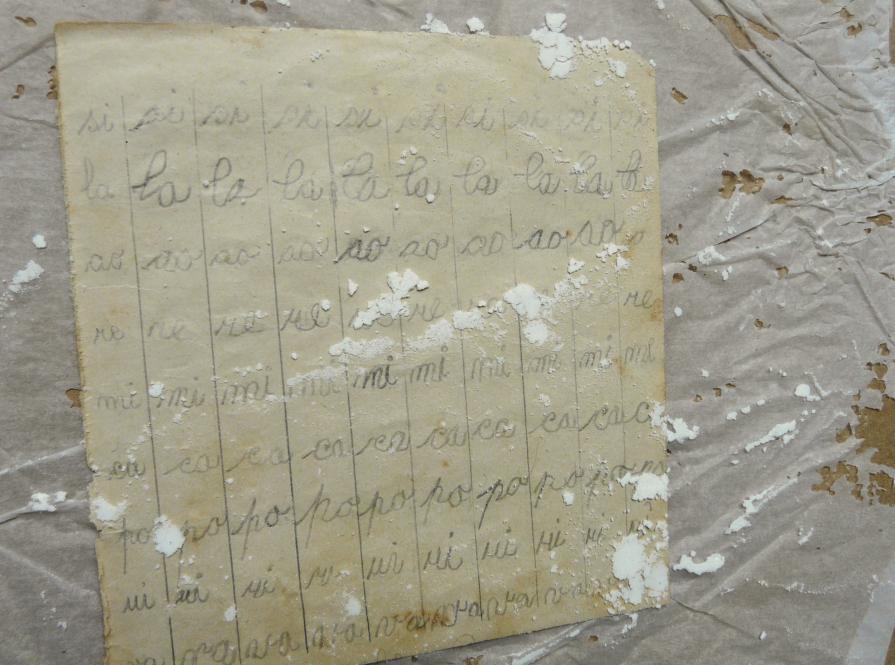 si si si si si si si si si si
la la la la la la la la la l
ao ao ao ao ao ao ao ao ao o
re ne re re re re re re
mi mi mi mi mi mi mi mi mi mi
ca ca ca ca ca ca ca ca ca c
po po po po po po po po po po
ui ui ui ui ui ui ui ui
va va va va va va va va